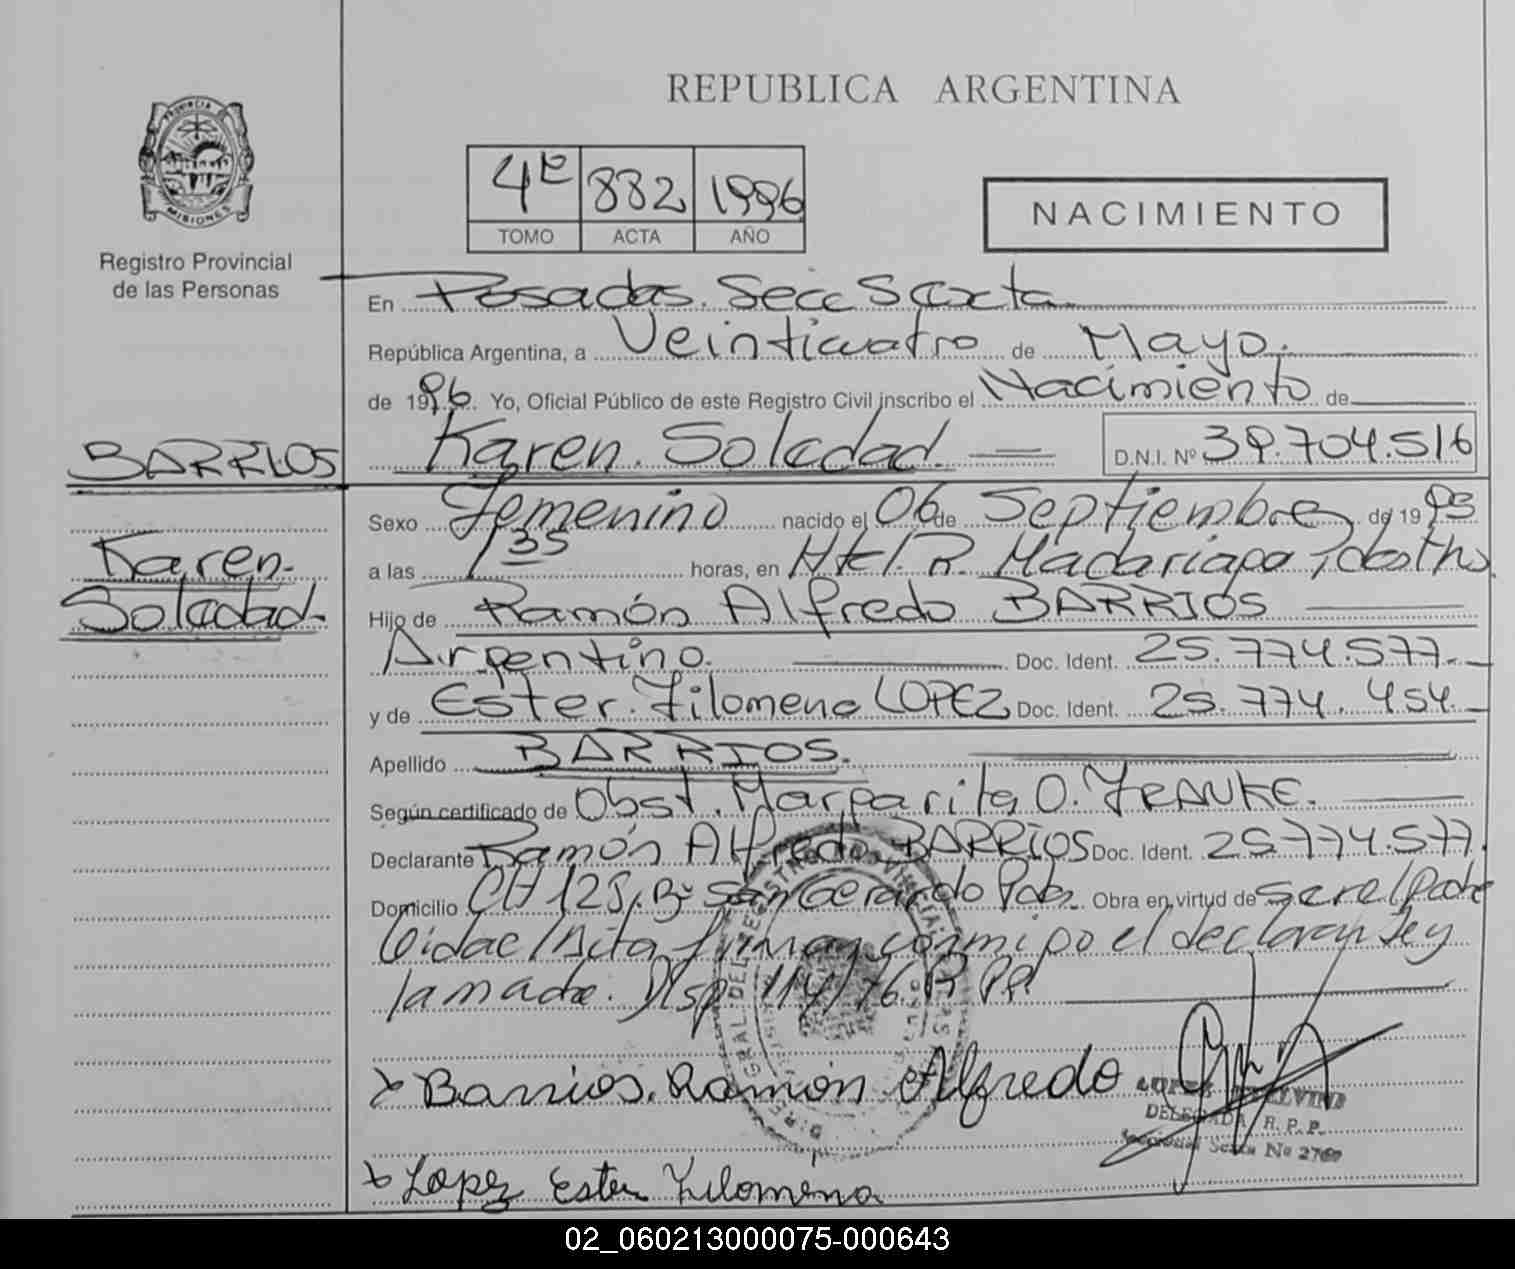 REPUBLICA ARGENTINA
PROVINCIA
MISIONES
Registro Provincial
de las Personas
4E 882 1996
TOMO ACTA AÑO
NACIMIENTO
En Posadas. Secc Sexta
República Argentina, a Veinticuatro de Mayo.
de 1996. Yo, Oficial Público de este Registro Civil inscribo el Nacimiento de
BARRIOS
Karen. Soledad. D.N.I. Nº 39.704.516
Karen.
Soledad.
Sexo Femenino nacido el 06 de Septiembre de 1995
a las 1 35 horas, en R. Madariaga
Hijo de Ramón Alfredo BARRIOS
Argentino. Doc. Ident. 25.774.577.
y de Ester. Filomena LOPEZ Doc. Ident. 25.774.454.
Apellido BARRIOS.
Según certificado de Obst. Margarita O. FRANKE.
Declarante Ramón Alfredo BARRIOS Doc. Ident. 25774.577.
Domicilio CH 125, Bº San Gerardo Pdas. Obra en virtud de ser el padre
Leida el Acta firman conmigo el declarante y
la madre. Disp. 114/76. R PP
Barrios. Ramón Alfredo
LOPEZ
DELEGADA R. P. P.
Seccional Sexta Nº
Lopez Ester Filomena
02_060213000075-000643